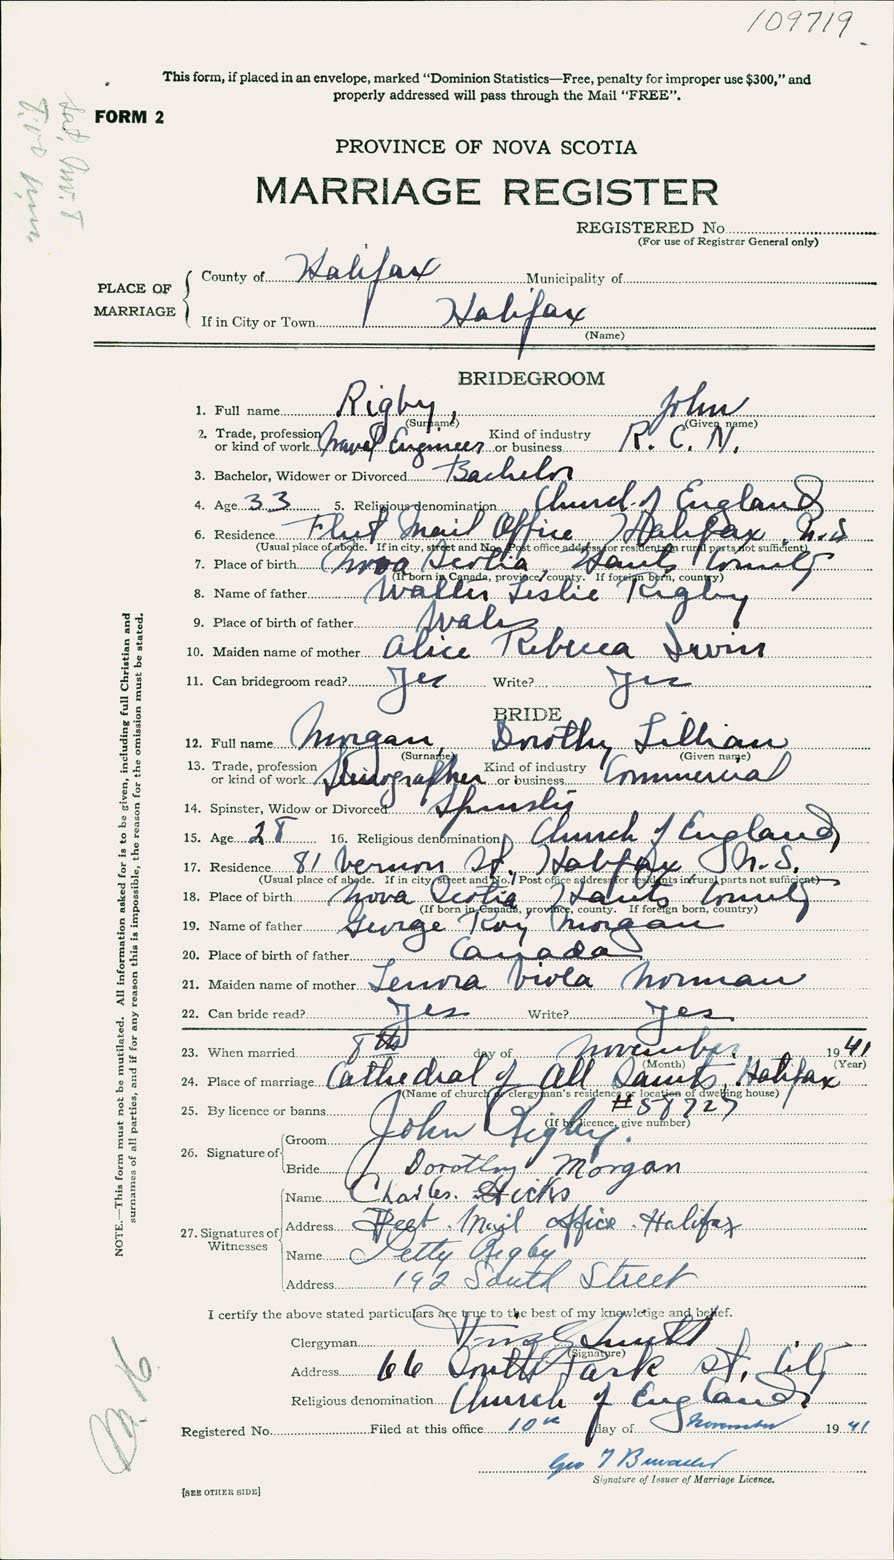 109719
This form, if placed in an envelope, marked "Dominion Statistics—Free, penalty for improper use $300," and
properly addressed will pass through the Mail "FREE".
FORM 2
PROVINCE OF NOVA SCOTIA
MARRIAGE REGISTER
REGISTERED No.
(For use of Registrar General only)
PLACE OF MARRIAGE
County of Halifax Municipality of
If in City or Town Halifax
(Name)
BRIDEGROOM
1. Full name Rigby, John
(Surname) (Given name)
2. Trade, profession or kind of work Naval Engineer Kind of industry or business R. C. N.
3. Bachelor, Widower or Divorced Bachelor
4. Age 33 5. Religious denomination Church of England
6. Residence Fleet Mail Office, Halifax, N.S
(Usual place of abode. If in city, street and No. Post office address for residents in rural parts not sufficient)
7. Place of birth Nova Scotia, Hants County
(If born in Canada, province, county. If foreign born, country)
8. Name of father Walter Leslie Rigby
9. Place of birth of father Wales
10. Maiden name of mother Alice Rebecca Irwin
11. Can bridegroom read? Yes Write? Yes
BRIDE
12. Full name Morgan, Dorothy Lillian
(Surname) (Given name)
13. Trade, profession or kind of work Stenographer Kind of industry or business Commercial
14. Spinster, Widow or Divorced Spinster
15. Age 28 16. Religious denomination Church of England
17. Residence 81 Vernon St., Halifax N.S.
(Usual place of abode. If in city street and No. Post office address for residents in rural parts not sufficient)
18. Place of birth Nova Scotia, Hants County
(If born in Canada, province, county. If foreign born, country)
19. Name of father George Roy Morgan
20. Place of birth of father Canada
21. Maiden name of mother Lenora Viola Norman
22. Can bride read? Yes Write? Yes
23. When married 8th day of November 1941
(Month) (Year)
24. Place of marriage Cathedral of All Saints, Halifax
(Name of church or clergyman's residence or location of dwelling house)
25. By licence or banns #58727
(If by licence, give number)
26. Signature of
Groom John Rigby.
Bride Dorothy Morgan
27. Signatures of Witnesses
Name Charles. Hicks
Address Fleet. Mail office. Halifax
Name Rigby
Address 192 South Street
I certify the above stated particulars are true to the best of my knowledge and belief.
Clergyman
(Signature)
Address 66 South Park St. City
Religious denomination Church of England
Registered No. Filed at this office 10th day of November 1941
Geo
Signature of Issuer of Marriage Licence.
[SEE OTHER SIDE]
NOTE.—This form must not be mutilated. All information asked for is to be given, including full Christian and
surnames of all parties, and if for any reason this is impossible, the reason for the omission must be stated.
Sat, Nov. 8